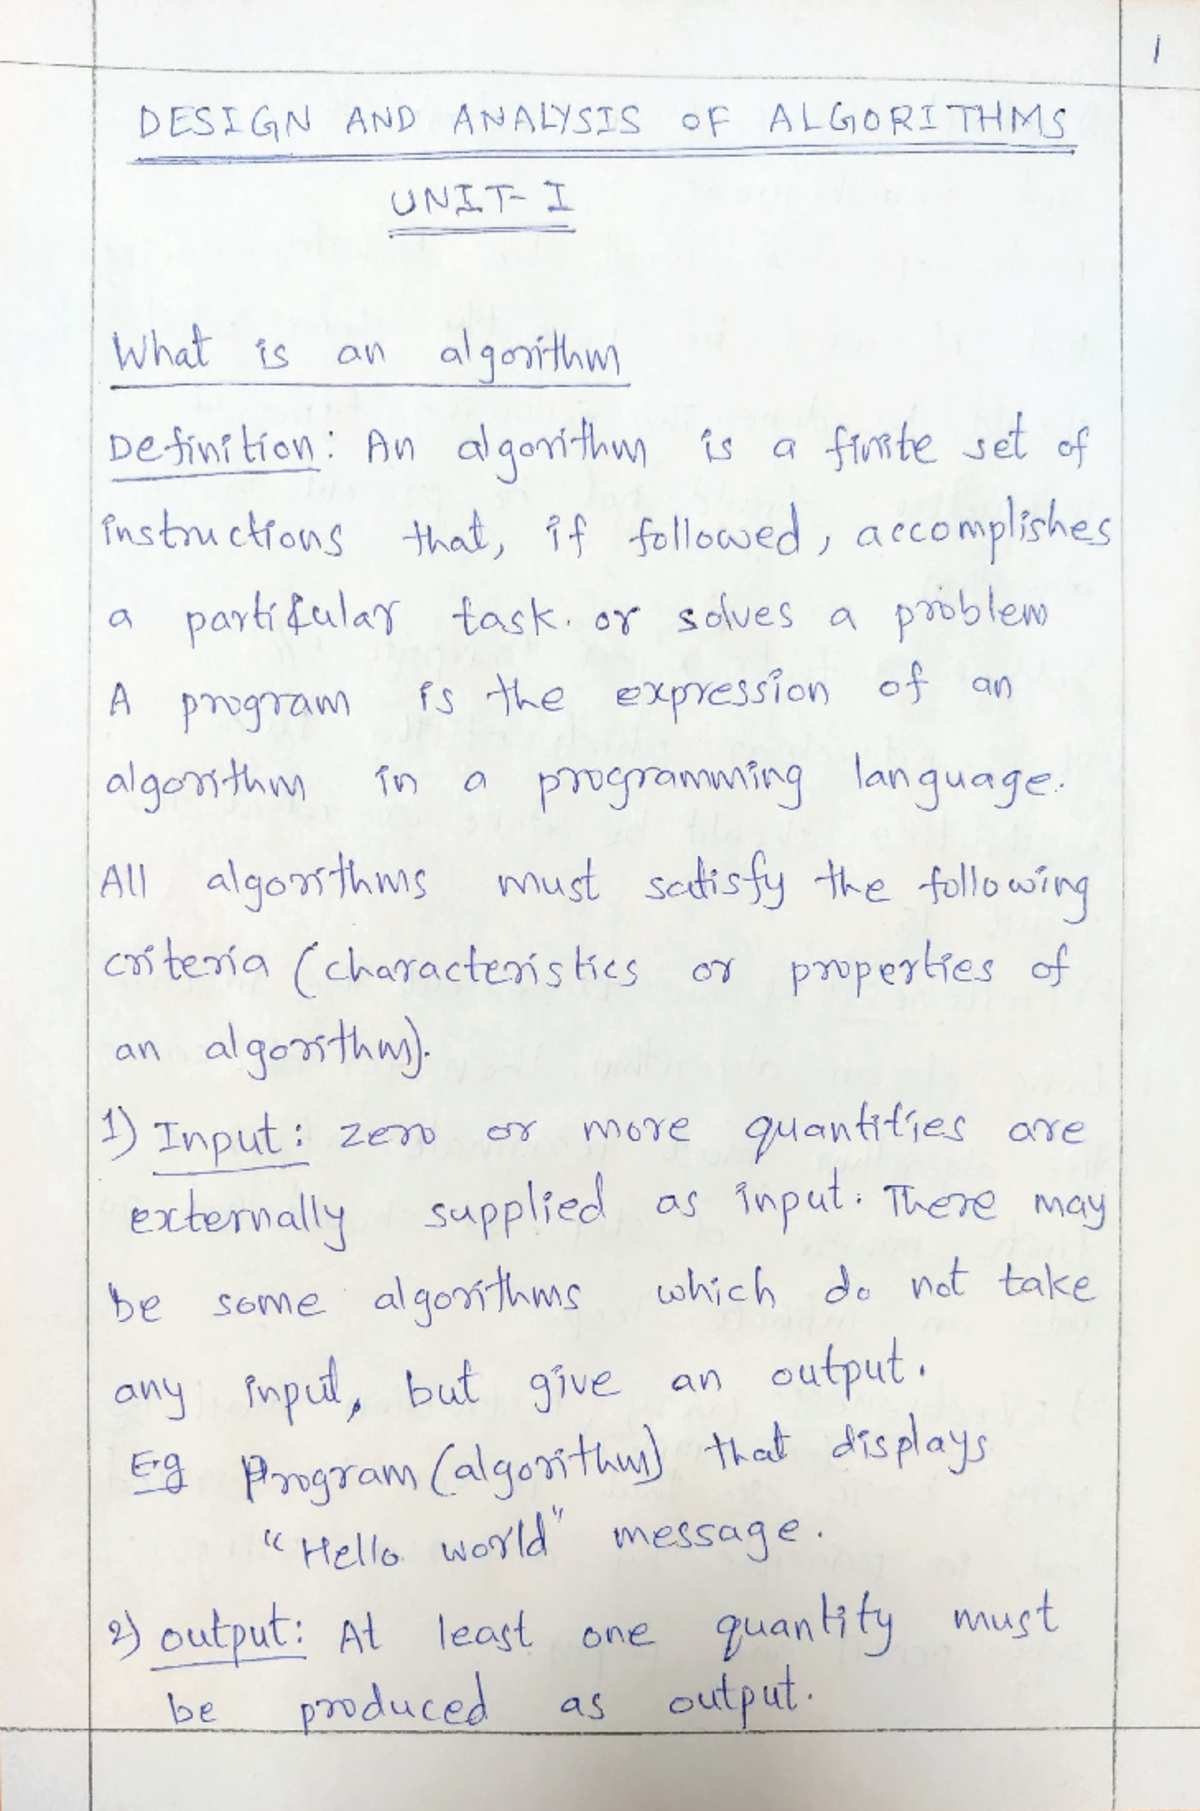 1
DESIGN AND ANALYSIS OF ALGORITHMS
UNIT-I
What is an algorithm
Definition: An algorithm is a finite set of
instructions that, if followed, accomplishes
a particular task. or solves a problem
A program is the expression of an
algorithm in a programming language.
All algorithms must satisfy the following
criteria (characteristics or properties of
an algorithm).
1) Input: zero or more quantities are
externally supplied as input. There may
be some algorithms which do not take
any input, but give an output.
E.g Program (algorithm) that displays
"Hello world" message.
2) output: At least one quantity must
be produced as output.